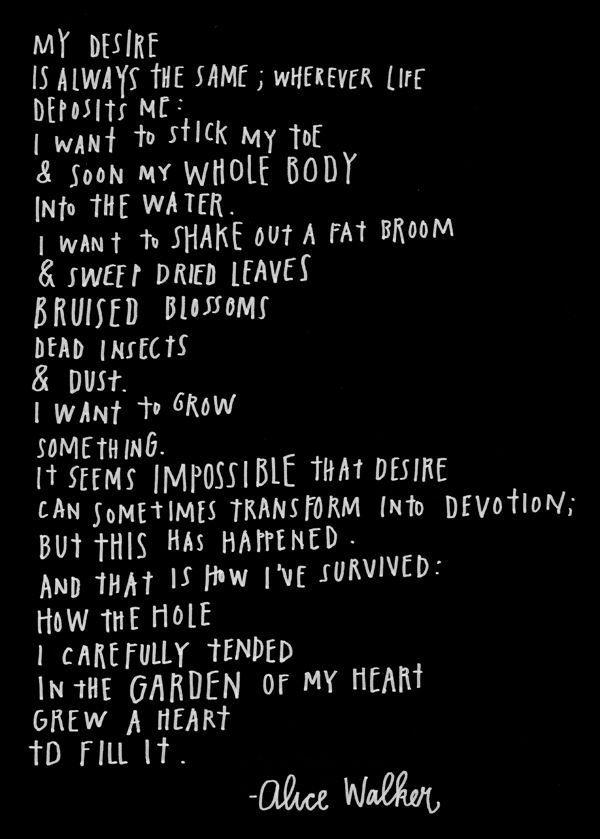 MY DESIRE
IS ALWAYS THE SAME; WHEREVER LIFE
DEPOSITS ME:
I WANT TO STICK MY TOE
& SOON MY WHOLE BODY
INTO THE WATER.
I WANT TO SHAKE OUT A FAT BROOM
& SWEEP DRIED LEAVES
BRUISED BLOSSOMS
DEAD INSECTS
& DUST.
I WANT TO GROW
SOMETHING.
IT SEEMS IMPOSSIBLE THAT DESIRE
CAN SOMETIMES TRANSFORM INTO DEVOTION;
BUT THIS HAS HAPPENED.
AND THAT IS HOW I'VE SURVIVED:
HOW THE HOLE
I CAREFULLY TENDED
IN THE GARDEN OF MY HEART
GREW A HEART
TO FILL IT.
-Alice Walker